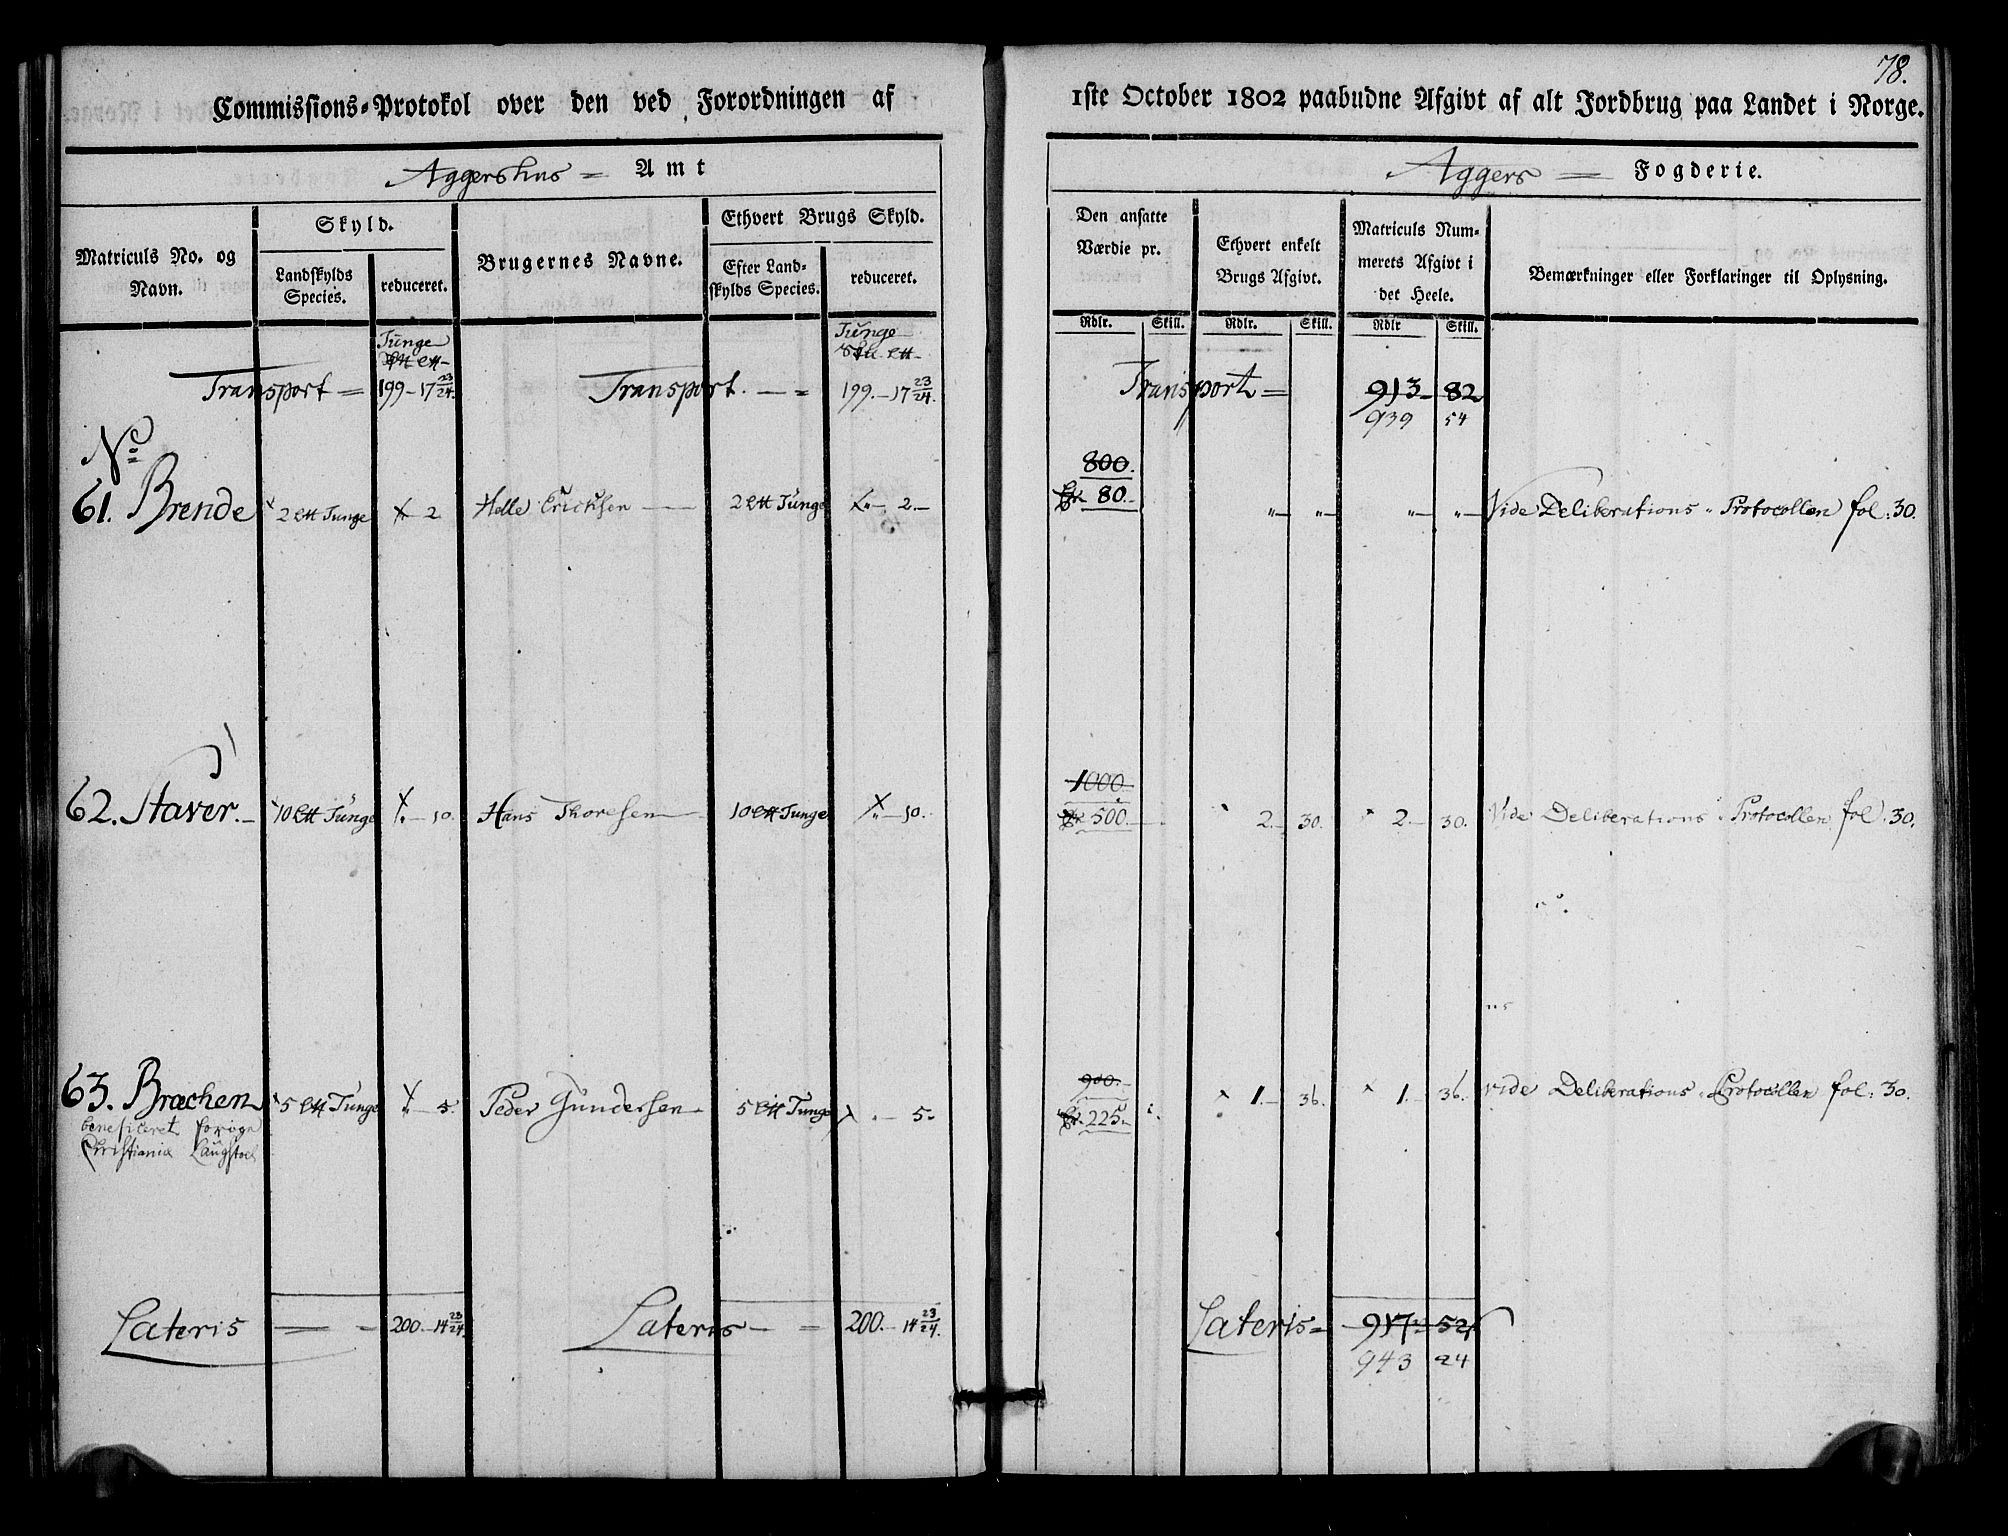 78.
Commissions-Protokol over den ved Forordningen af 1ste October 1802 paabudne Afgivt af alt Jordbrug paa Landet i Norge.
Aggershus = Amt
Aggers = Fogderie.
Matriculs No. og Navn.
Skyld.
Landskylds Species.
reduceret.
Brugernes Navne.
Ethvert Brugs Skyld.
Efter Landskylds Species.
reduceret.
Den ansatte Værdie pr.
Ethvert enkelt Brugs Afgivt.
Matriculs Nummerets Afgivt i det Heele.
Bemærkninger eller Forklaringer til Oplysning.
Rdlr. Skill. Rdlr. Skill. Rdlr Skill.
Tunge Tunge
Transport = 199 - 17 23/24. Transport. - = 199. - 17 23/24. Transport = 913 82
939 54
No
800.
61. Brende 2 Tunge 2 Helle Erichsen 2 Tunge 2. 80. " " " " Vide Deliberations Protocollen fol: 30.
1000
62. Staver. 10 Tunge 10. Hans Thoresen 10 Tunge 10. 500. 2. 30. 2. 30. Vide Deliberations Protocollen fol. 30.
900.
63. Brachen 5 Tunge 5. Peder Gundersen 5 Tunge 5. 225. 1. 36. 1. 36. vide Deliberations Protocollen fol: 30.
beneficeret
Christiania
Lateris = 200. 14 23/24. Lateris = 200. - 14 23/24. Lateris = 917 52
943 24